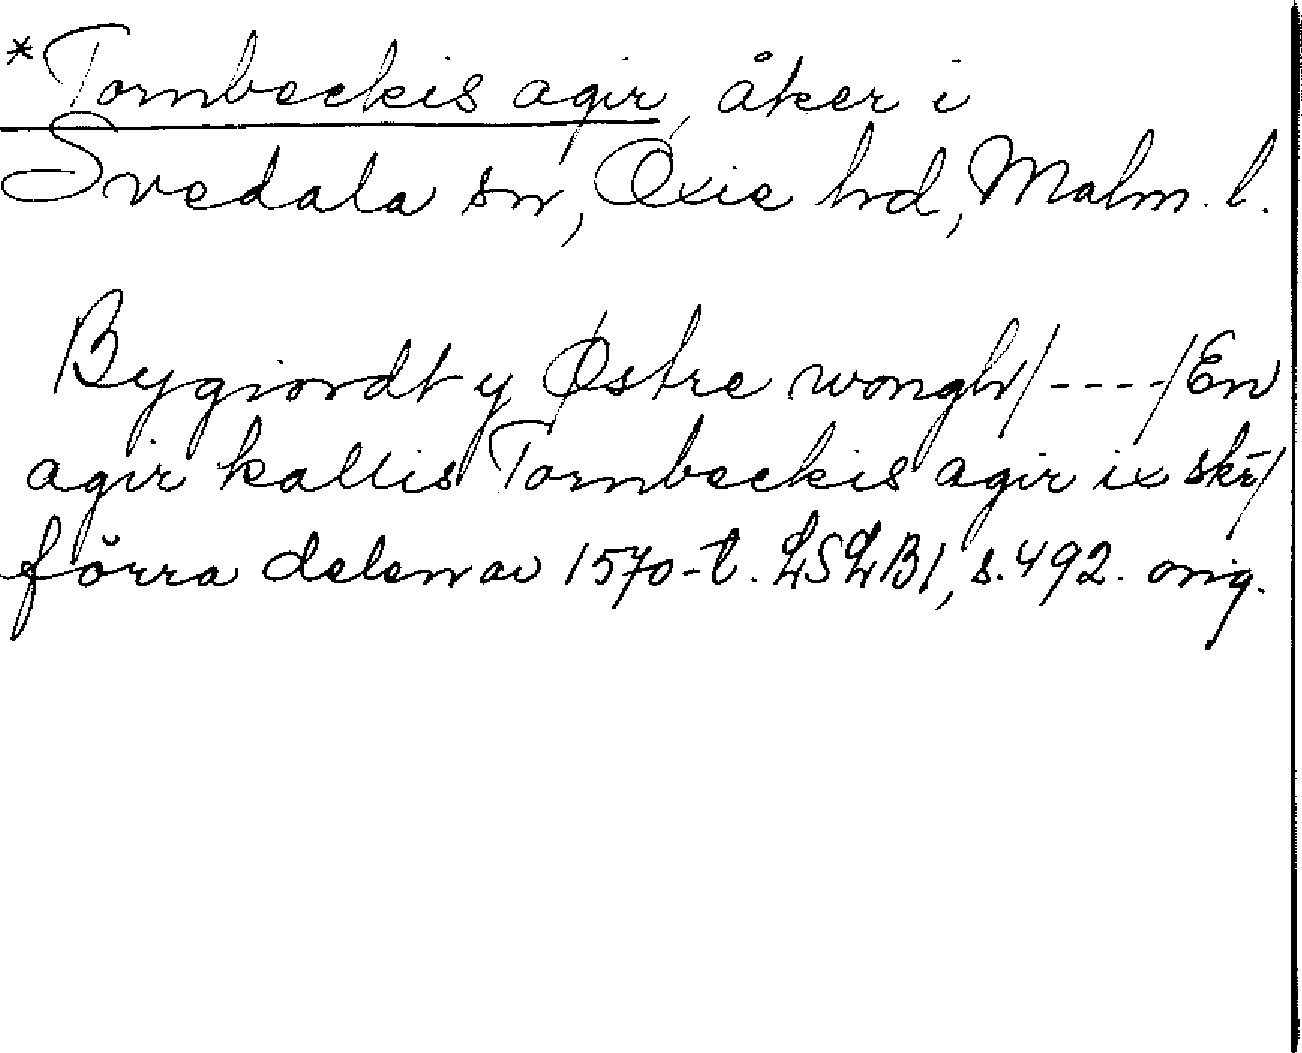 *Tornbeckis agir, åker i
Svedala sn, Oxie hd, Malm. l.
Bygiordt y Østre wongh/----/En
agir kallis Tornbeckis agir ix skr/
förra delen av 1570-t. LSLB1, s.492. orig.